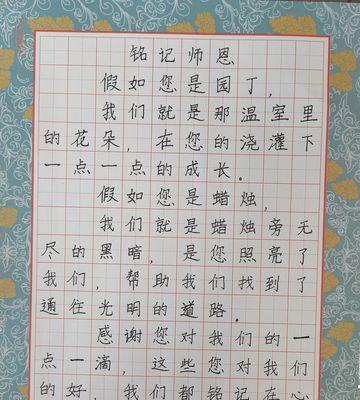 铭记师恩
假如您是园丁,
我们就是那温室里
的花朵,在您的浇灌下
一点一点的成长。
假如您是蜡烛,
我们就是蜡烛旁无
尽的黑暗,是您照亮了
我们,帮助我们找到了
通往光明的道路。
感谢您对我们的一
点一滴,这些您对我们
的好,我们都铭记在心